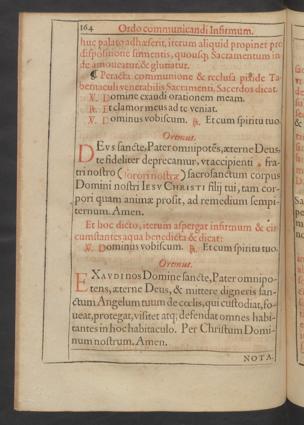 164 Ordo communicandi Infirmum.
huc palato adhæserit, iterum aliquid propinet pro
dispositione sirmentis, quousq; Sacramentum in-
de amoueatur, & glutiatur.
¶ Peracta communione & reclusa pixide Ta-
bernaculi venerabilis Sacramenti, Sacerdos dicat.
℣. Domine exaudi orationem meam.
℟. Et clamor meus ad te veniat.
℣. Dominus vobiscum. ℟. Et cum spiritu tuo.
Oremus.
DEVS sancte, Pater omnipotẽs, æterne Deus,
te fideliter deprecamur, vt accipienti fra-
tri nostro (sorori nostræ) sacrosanctum corpus
Domini nostri IESV CHRISTI filij tui, tam cor-
pori quam animæ prosit, ad remedium sempi-
ternum. Amen.
Et hoc dicto, iterum aspergat infirmum & cir
cumstantes aqua benedicta & dicat:
℣. Dominus vobiscum. ℟. Et cum spiritu tuo.
Oremus.
EXAVDI NOS Domine sancte, Pater omnipo-
tens, æterne Deus, & mittere digneris san-
ctum Angelum tuum de cœlis, qui custodiat, fo-
ueat, protegat, visitet atq; defendat omnes habi-
tantes in hoc habitaculo. Per Christum Domi-
num nostrum. Amen.
NOTA.